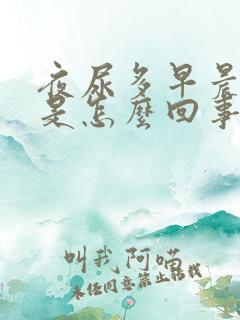 夜尿多早晨
是怎麼回事
叫我阿喵
未经同意禁止转载